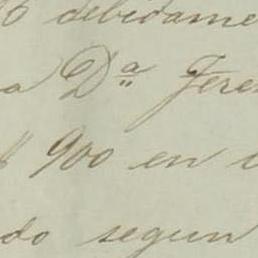 debidame
a Dª Fere
$ 900 en
do segun